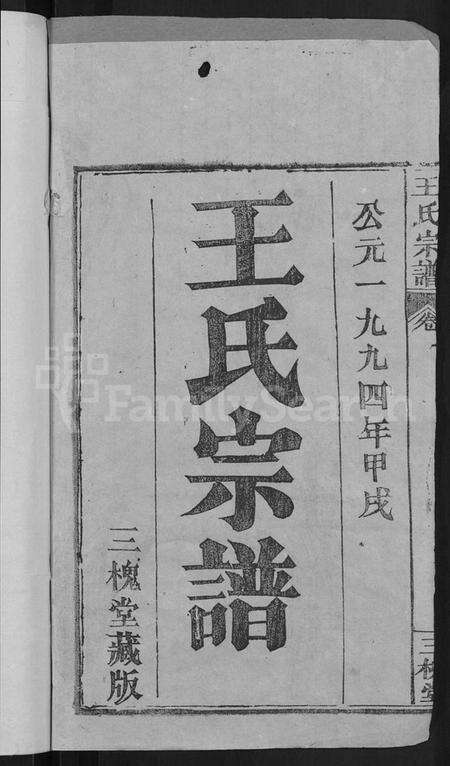 王氏宗譜
卷
三槐堂
公元一九九四年甲戌
王氏宗譜
三槐堂藏版
FamilySearch